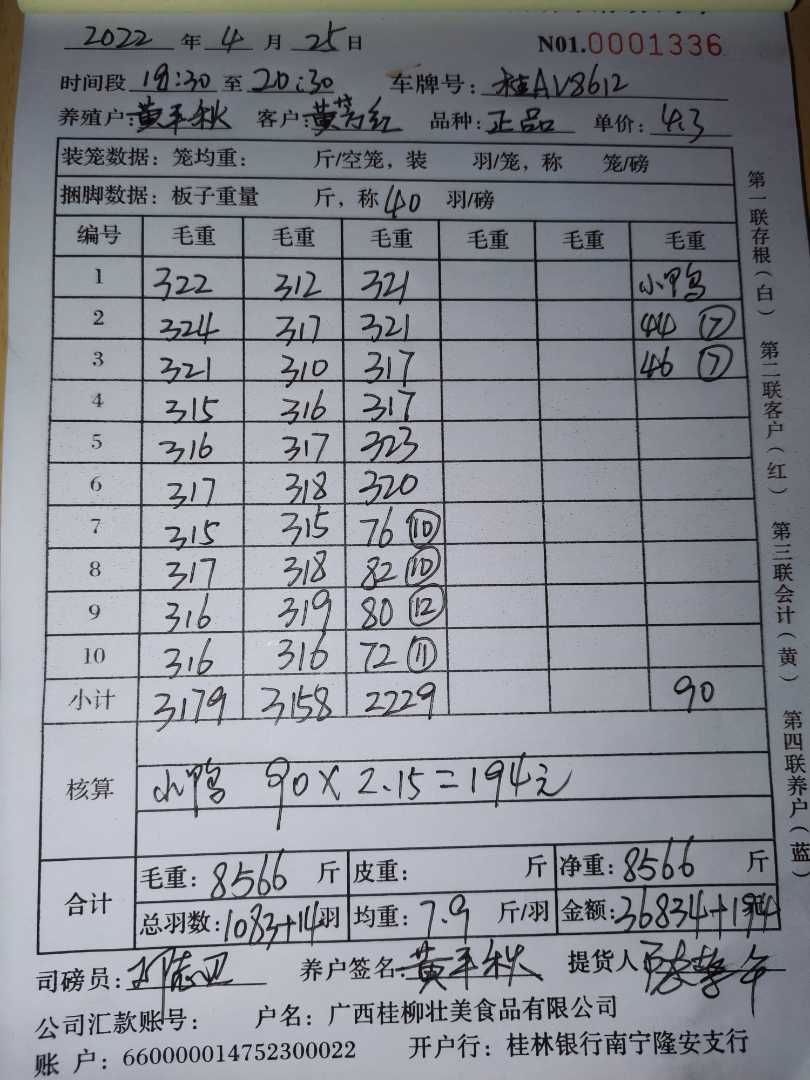 2022 年 4 月 25 日 N01.0001336
时间段 18:30 至 20:30 车牌号: 桂AV8612
养殖户: 黄平秋 客户: 黄芳红 品种: 正品 单价: 4.3
装笼数据: 笼均重: 斤/空笼, 装 羽/笼, 称 笼/磅
捆脚数据: 板子重量 斤, 称 40 羽/磅
编号 毛重 毛重 毛重 毛重 毛重 毛重
1 322 312 321 小鸭
2 324 317 321 44 ⑦
3 321 310 317 46 ⑦
4 315 316 317
5 316 317 323
6 317 318 320
7 315 315 76 ⑩
8 317 318 82 ⑩
9 316 319 80 ⑫
10 316 316 72 ⑪
小计 3179 3158 2229 90
核算 小鸭 90×2.15=194元
合计 毛重: 8566 斤 皮重: 斤 净重: 8566 斤
总羽数: 1083+14 羽 均重: 7.9 斤/羽 金额: 36834+194 元
司磅员: 养户签名: 黄平秋 提货人
公司汇款账号: 户名: 广西桂柳壮美食品有限公司
账 户: 660000014752300022 开户行: 桂林银行南宁隆安支行
第一联存根(白) 第二联客户(红) 第三联会计(黄) 第四联养户(蓝)